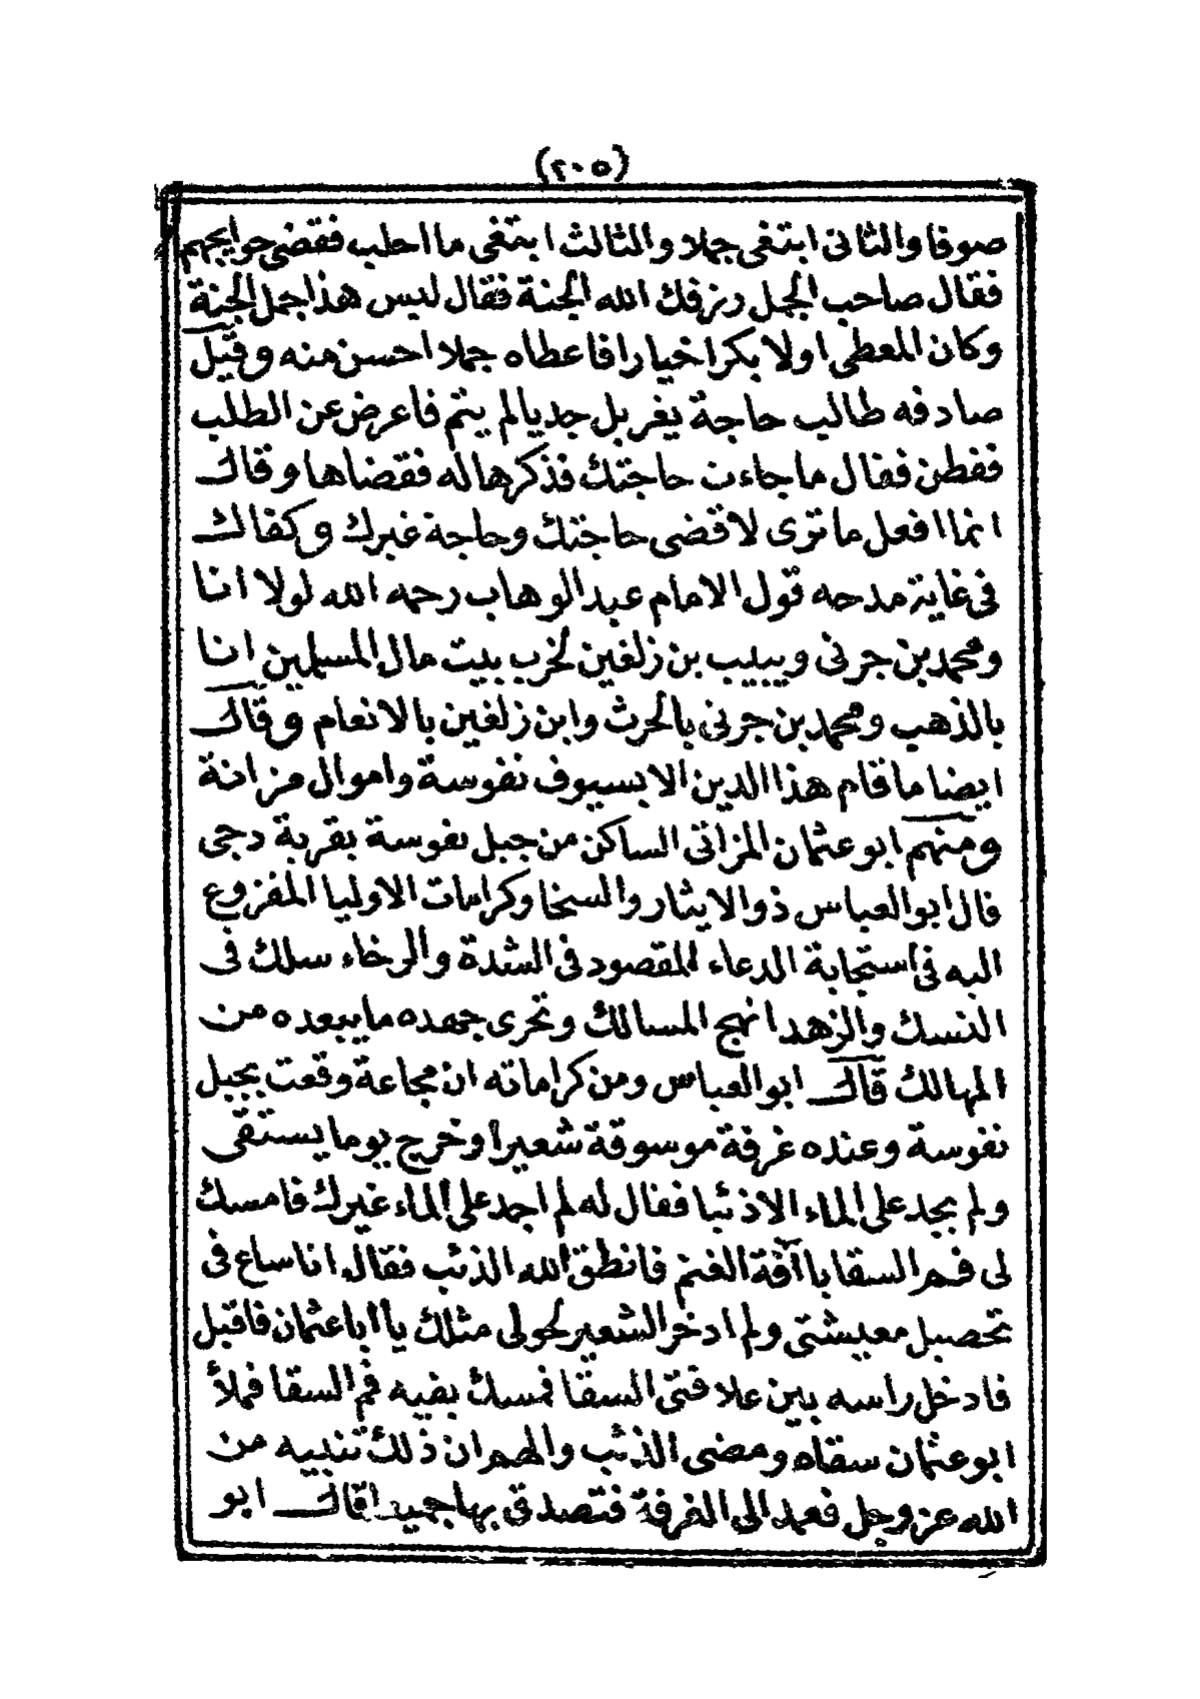 (٢٠٥)
صوفا والثانى ابتغى جملا والثالث ابتغى ما احلب فقضى حوايجهم
فقال صاحب الجمل رزقك الله الجنة فقال ليس هذا جمل الجنة
وكان المعطى اولا بكرا خيارا فاعطاه جملا احسن منه وقيل
صادفه طالب حاجة يغربل جديا لم يتم فاعرض عن الطلب
ففطن فقال ما جاءت حاجتك فذكرها له فقضاها وقال
انما افعل ما ترى لاقضى حاجتك وحاجة غيرك وكفاك
فى غاية مدحه قول الامام عبد الوهاب رحمه الله لولا انا
ومحمد بن جرنى ويبيب بن زلغين لخرب بيت مال المسلمين انا
بالذهب ومحمد بن جرنى بالحرث وابن زلغين بالانعام وقال
ايضا ما قام هذا الدين الا بسيوف نفوسة واموال مزاتة
ومنهم ابو عثمان المزاتى الساكن من جبل نفوسة بقرية دجى
قال ابو العباس ذو الايثار والسخا وكرامات الاوليا المفزوع
اليه فى استجابة الدعاء المقصود فى الشدة والرخاء سلك فى
النسك والزهد انهج المسالك وتحرى جهده ما يبعده من
المهالك قال ابو العباس ومن كراماته ان مجاعة وقعت بجبل
نفوسة وعنده غرفة موسوقة شعيرا وخرج يوما يستقى
ولم يجد على الماء الا ذئبا فقال له لم اجد على الماء غيرك فامسك
لى فم السقا يا آفة الغنم فانطق الله الذئب فقال انا ساع فى
تحصيل معيشتى ولم ادخر الشعير لحولى مثلك يا ابا عثمان فاقبل
فادخل راسه بين علاقتى السقا فمسك بفيه فم السقا فملأ
ابو عثمان سقاه ومضى الذئب والهم ان ذلك تنبيه من
الله عز وجل فعمد الى الغرفة فتصدق بها جميدا قال ابو